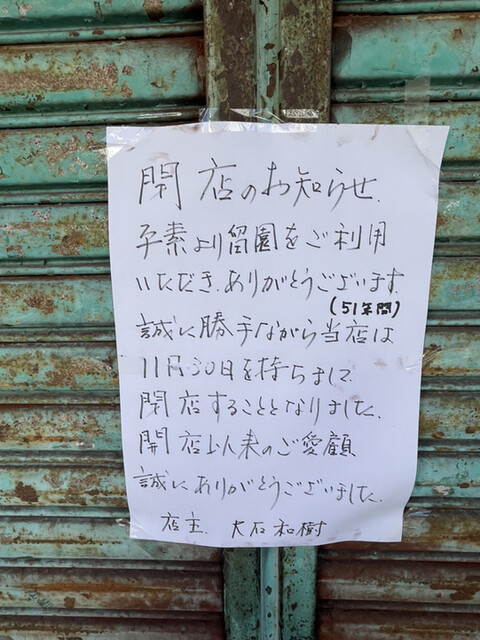 閉店のお知らせ.
平素より留園をご利用
いただき、ありがとうございます.
(51年間)
誠に勝手ながら当店は
11月30日を持ちまして
閉店することとなりました.
開店以来のご愛顧
誠にありがとうございました.
店主. 大石和樹